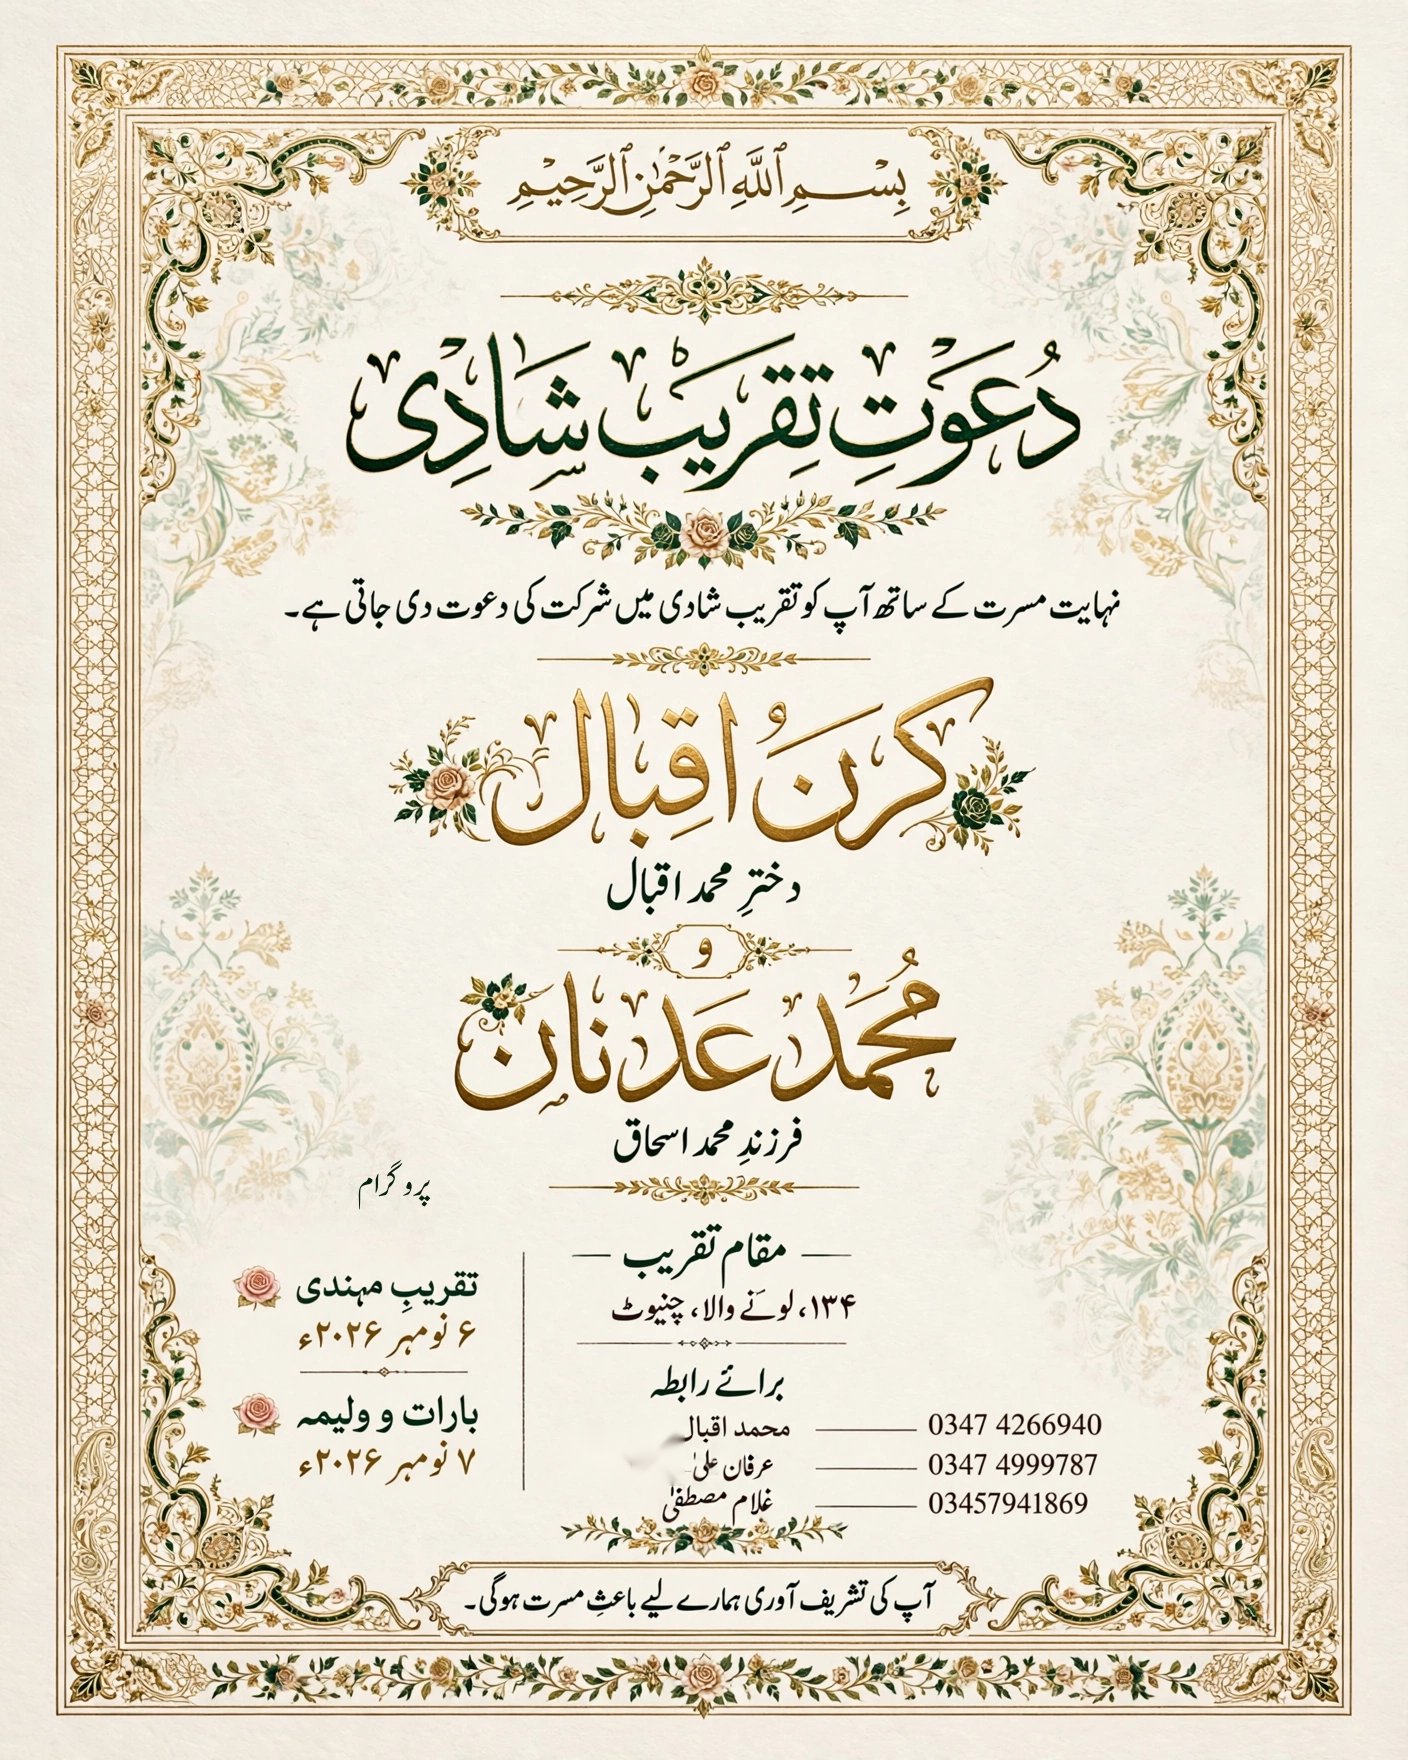 بِسْمِ ٱللَّهِ ٱلرَّحْمَٰنِ ٱلرَّحِيمِ
دُعوَتِ تقریب شادی
نہایت مسرت کے ساتھ آپ کو تقریب شادی میں شرکت کی دعوت دی جاتی ہے۔
کرن اقبال
دخترِ محمد اقبال
و
محمد عدنان
فرزندِ محمد اسحاق
پروگرام
تقریبِ مہندی
۶ نومبر ۲۰۲۶ء
بارات و ولیمہ
۷ نومبر ۲۰۲۶ء
مقام تقریب
۱۳۴، لونے والا، چنیوٹ
برائے رابطہ
محمد اقبال 0347 4266940
عرفان علی 0347 4999787
غلام مصطفیٰ 03457941869
آپ کی تشریف آوری ہمارے لیے باعثِ مسرت ہوگی۔